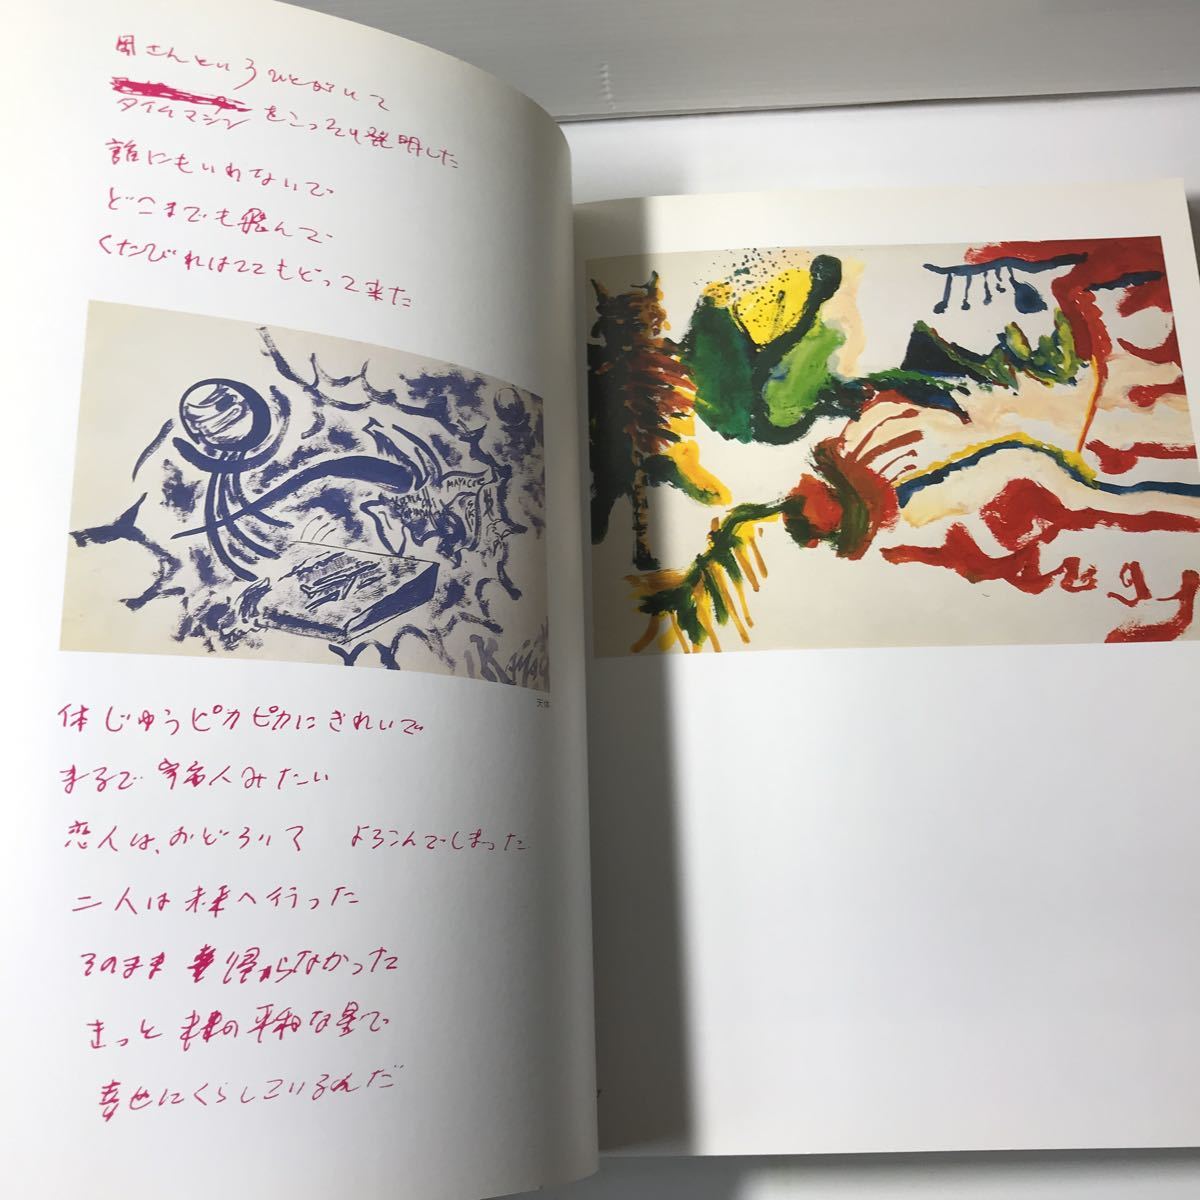 風さんというひとがいて
タイムマシン をこっそり発明した
誰にもいわないで
どこまでも飛んで
くたびれはててもどって来た
MAYA CODE
天体
体じゅうピカピカにきれいで
まるで宇宙人みたい
恋人は、おどろいて よろこんでしまった
二人は未来へ行った
そのまま 帰らなかった
きっと未来の平和な星で
幸せにくらしているんだ